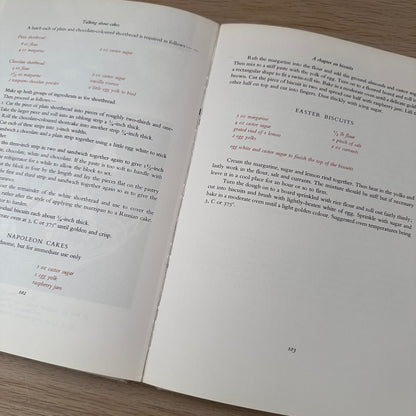 Talking about cakes
A batch each of plain and chocolate-coloured shortbread is required as follows —
Plain shortbread
6 oz flour
4 oz margarine
2 oz castor sugar
Chocolate shortbread
oz flour
oz margarine
teaspoons chocolate powder
2 oz castor sugar
vanilla essence
a little egg yolk to bind
Make up both groups of ingredients as for shortbread.
Then proceed as follows—
1. Cut the piece of plain shortbread into pieces of roughly two-thirds and one-
Take the larger piece and roll into an oblong strip 1/4-inch thick.
Roll the chocolate-coloured shortcake into another strip 3/4-inch thick.
each of these strips into 3-inch widths.
sandwich a chocolate and a plain strip together using a little egg white to stick
the three-inch strip in two and sandwich together again to give
white, chocolate, white and chocolate: If the paste is too soft to handle with
refrigerator for a while to allow the block to set.
the block in four by the length and lay the pieces flat on the pastry
the first and third strip and sandwich together again so as to give the
the remainder of the white shortbread and use to cover the
rather after the style of applying the marzipan to a Russian cake.
biscuits each about 1/4-inch thick.
3, C or 375° until golden and crisp.
NAPOLEON CAKES
for immediate use only
1 oz castor sugar
1 egg yolk
raspberry jam
122
A chapter on biscuits
Rub the margarine into the flour and add the ground almonds and castor sugar.
Then mix to a stiff paste with the yolk of egg. Turn on to a floured board
a rectangular shape to fit a swiss-roll tin. Bake in a moderate oven until a delicate
Cut the piece of biscuit in two and spread one half with raspberry jam.
other half on top and cut into fingers. Dust thickly with icing sugar.
EASTER BISCUITS
5 oz margarine
6 oz castor sugar
grated rind of 1 lemon
2 egg yolks
1/2 lb flour
1 pinch of salt
2 oz currants
egg white and castor sugar to finish the top of the biscuits
Create the margarine, sugar and lemon rind together. Then beat in the yolks and
lastly work in the flour, salt and currants. The mixture should be stiff but if necessary
leave it in a cool place for an hour or so to firm.
Turn the dough on to a board sprinkled with rice flour and roll out fairly thinly;
cut into biscuits and brush with lightly-beaten white of egg. Sprinkle with sugar and
bake in a moderate oven until a light golden colour. Suggested oven temperatures being
3, C or 375°.
123